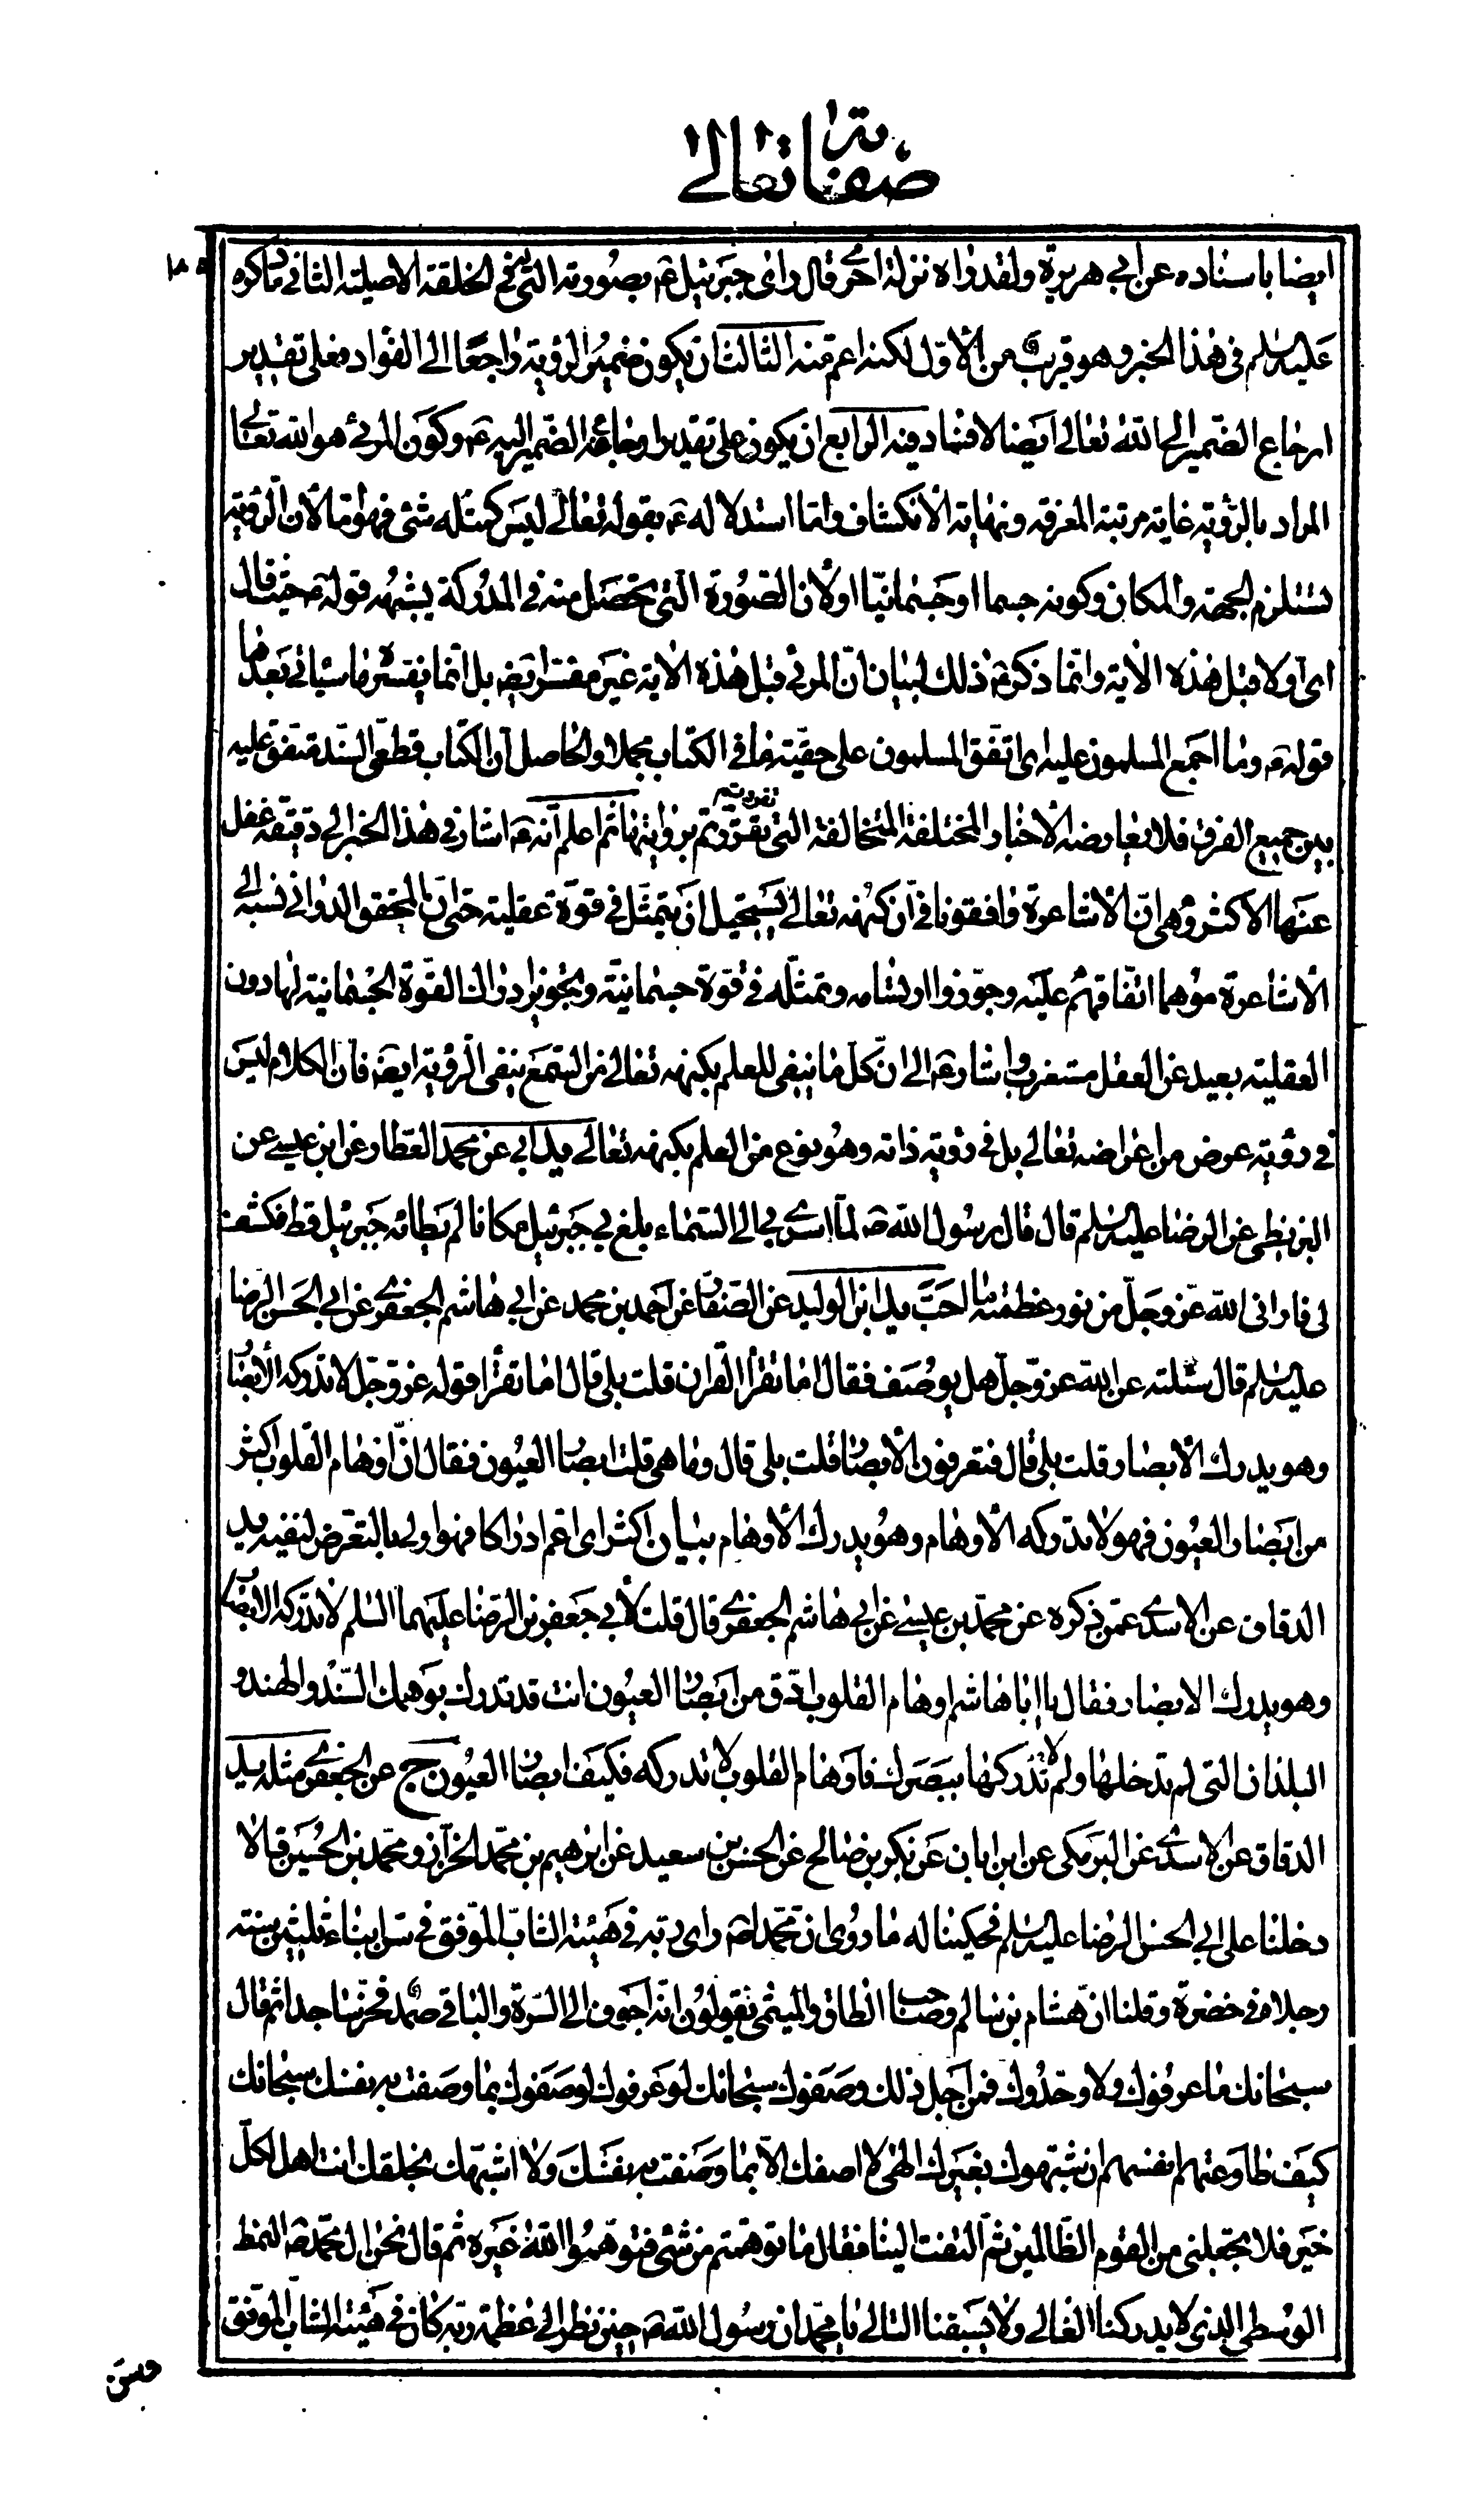 صفاته تعالى
ايضا باسناده عن ابى هريرة ولقد راه نزلة اخرى قال راى جبرئيل ع بصورته التى فى الخلقة الاصلية الثانى ما ذكره
عليه السلم فى هذا الخبر وهو قريب من الأول لكنه اعم منه الثالث ان يكون ضمير الرؤية راجعا الى الفؤاد فعلى تقدير
ارجاع الضمير الى الله تعالى ايضا لا فساد فيه الرابع ان يكون على تقدير ارجاع الضمير اليه ع وكون المرئى هو الله تعالى
المراد بالرؤية غاية مرتبة المعرفة ونهاية الانكشاف واما استدلاله ع بقوله تعالى ليس كمثله شئ فهو اما لأن الرؤية
تستلزم الجهة والمكان وكونه جسما او جسمانيا او لأن الصورة التى تحصل منه فى المدركة يشبهه قوله ع حيث قال
اى اولا قبل هذه الاية وانما ذكر ع ذلك لبيان ان المرئى قبل هذه الاية غير مفسر ايضا بل انما يفسره ما سياتى بعدها
قوله ع وما اجمع المسلمون عليه اى اتفق المسلمون على حقية ما فى الكتاب مجملا والحاصل ان الكتاب قطعى السند متفق عليه
بين جميع الفرق فلا يعارضه الأخبار المختلفة المتخالفة التى تفردتم بروايتها ثم اعلم انه ع اشار فى هذا الخبر الى دقيقة غفل
عنها الاكثر وهى ان الاشاعرة وافقونا فى ان كنهه تعالى يستحيل ان يتمثل فى قوة عقلية حتى ان المحقق الدوانى نسبه الى
الاشاعرة موهما اتفاقهم عليه وجوزوا ارتسامه وتمثله فى قوة جسمانية وتجويز ادراك القوة الجسمانية لها دون
العقلية بعيد عن العقل مستغرب واشار ع الى ان كل ما ينفى العلم بكنهه تعالى من السمع ينفى الرؤية ايضا فان الكلام ليس
فى رؤية عرض من اعراضه تعالى بل فى رؤية ذاته وهو نوع من العلم بكنهه تعالى يد ابى عن محمد العطار عن ابن عيسى عن
البزنطى عن الرضا عليه السلم قال قال رسول الله ص لما اسرى بى الى السماء بلغ بى جبرئيل مكانا لم يطاه جبرئيل قط فكشف
لى فارانى الله عز وجل من نور عظمته ما احب يد ابن الوليد عن الصفار عن احمد بن محمد عن ابى هاشم الجعفرى عن ابى الحسن الرضا
عليه السلم قال سئلته عن الله عز وجل هل يوصف فقال اما تقرأ القران قلت بلى قال اما تقرأ قوله عز وجل لا تدركه الأبصار
وهو يدرك الأبصار قلت بلى قال فتعرفون الأبصار قلت بلى قال وما هى قلت ابصار العيون فقال ان اوهام القلوب اكثر
من ابصار العيون فهو لا تدركه الأوهام وهو يدرك الأوهام بيان اكثر اى اعم ادراكا فهو اولى بالتعرض لنفيه يد
الدقاق عن الاسدى عمن ذكره عن محمد بن عيسى عن ابى هاشم الجعفرى قال قلت لأبى جعفر بن الرضا عليهما السلم لا تدركه الابصار
وهو يدرك الابصار فقال يا ابا هاشم اوهام القلوب ادق من ابصار العيون انت قد تدرك بوهمك السند والهند و
البلدان التى لم تدخلها ولم تدركها ببصرك فاوهام القلوب لا تدركه فكيف ابصار العيون ج عن الجعفرى مثله يد
الدقاق عن الاسدى عن البرمكى عن ابن ابان عن بكر بن صالح عن الحسن بن سعيد عن ابرهيم بن محمد الخزاز ومحمد بن الحسين قالا
دخلنا على ابى الحسن الرضا عليه السلم فحكينا له ما روى ان محمدا ص راى ربه فى هيئة الشاب الموفق فى سن ابناء ثلثين سنة
رجلاه فى خضرة وقلنا ان هشام بن سالم وصاحب الطاق والميثمى يقولون انه اجوف الى السرة والباقى صمد فخر ساجدا ثم قال
سبحانك ما عرفوك ولا وحدوك فمن اجل ذلك وصفوك سبحانك لو عرفوك لوصفوك بما وصفت به نفسك سبحانك
كيف طاوعتهم انفسهم ان شبهوك بغيرك الهى لا اصفك الا بما وصفت به نفسك ولا اشبهك بخلقك انت اهل لكل
خير فلا تجعلنى من القوم الظالمين ثم التفت الينا فقال ما توهمتم من شئ فتوهموا الله غيره ثم قال نحن ال محمد ص النمط
الوسطى الذى لا يدركنا الغالى ولا يسبقنا التالى يا محمد ان رسول الله ص حين نظر الى عظمة ربه كان فى هيئة الشاب الموفق
وسن